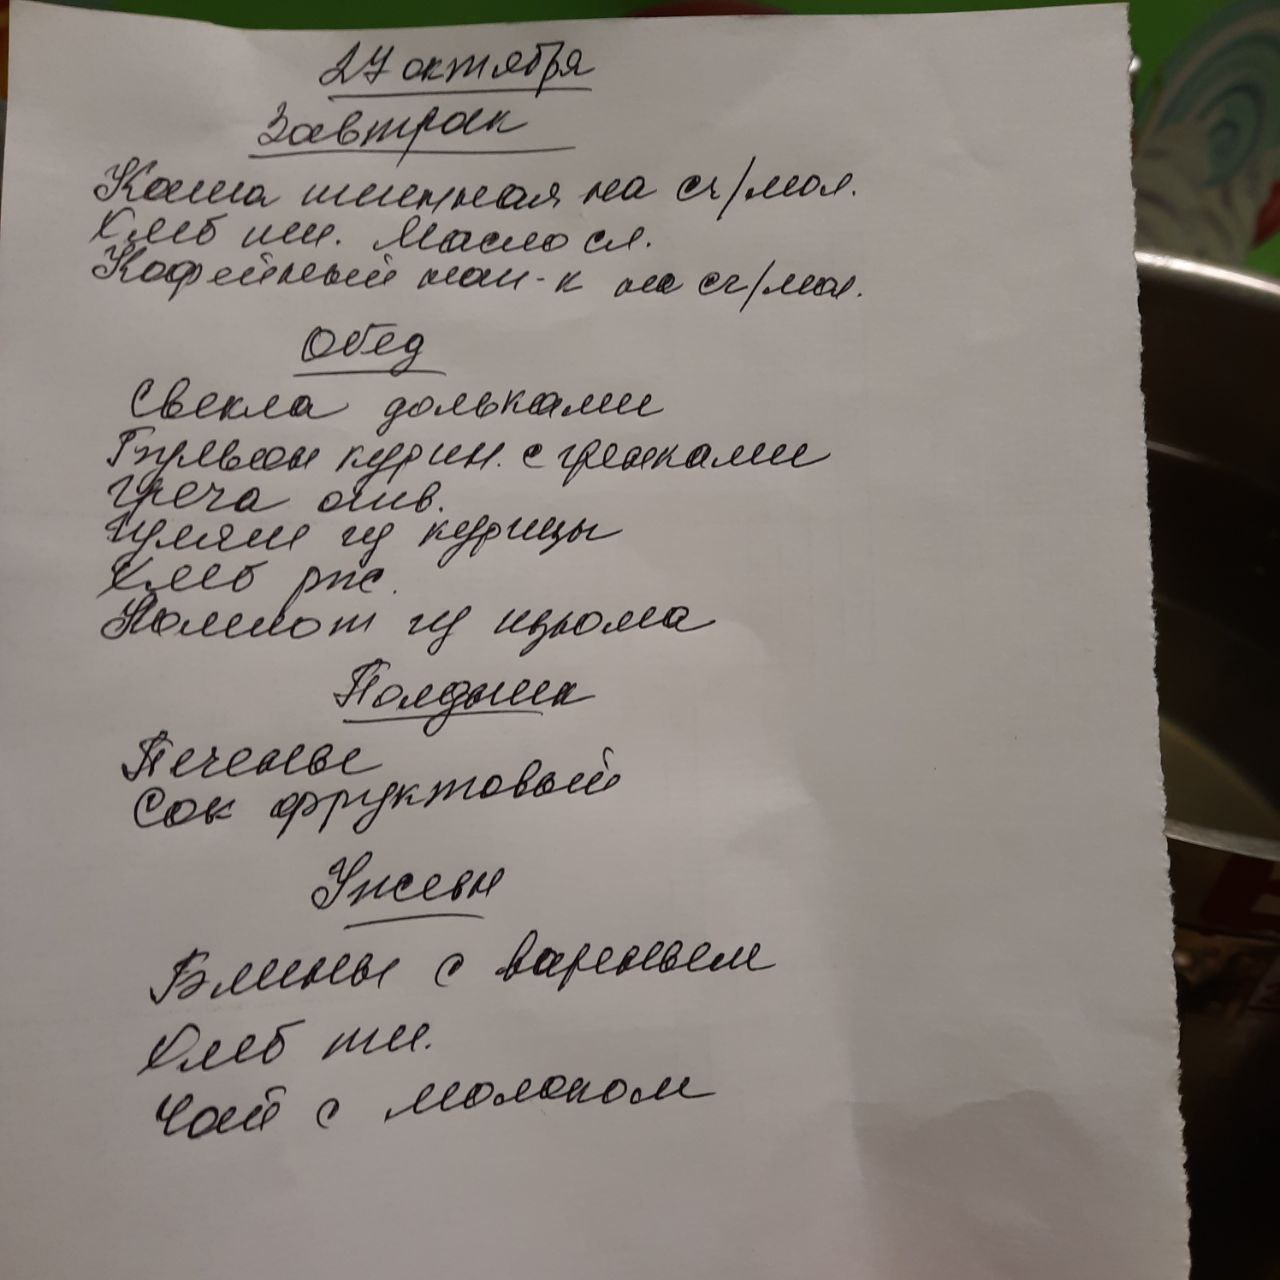 27 октября
Завтрак
Каша пшенная на сг/мол.
Хлеб пш. Масло сл.
Кофейный нап-к на сг/мол.
Обед
Свекла дольками
Бульон курин. с гренками
Греча отв.
Гуляш из курицы
Хлеб рж.
Компот из изюма
Полдник
Печенье
Сок фруктовый
Ужин
Блины с вареньем
Хлеб пш.
Чай с молоком